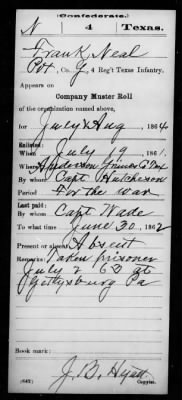 Confederate.
N 4 Texas.
Frank Neal
Pvt, Co. G, 4 Reg't Texas Infantry.
Appears on
Company Muster Roll
of the organization named above,
for July & Aug, 1864
Enlisted:
When July 19, 1861.
Where Anderson Grimes Co Tex
By whom Capt Hutcheson
Period For the war
Last paid:
By whom Capt Wade
To what time June 30, 1862
Present or absent Absent
Remarks: Taken prisoner
July 2 63 at
Gettysburg Pa
Book mark:
J. B. Hyatt
(642) Copyist.